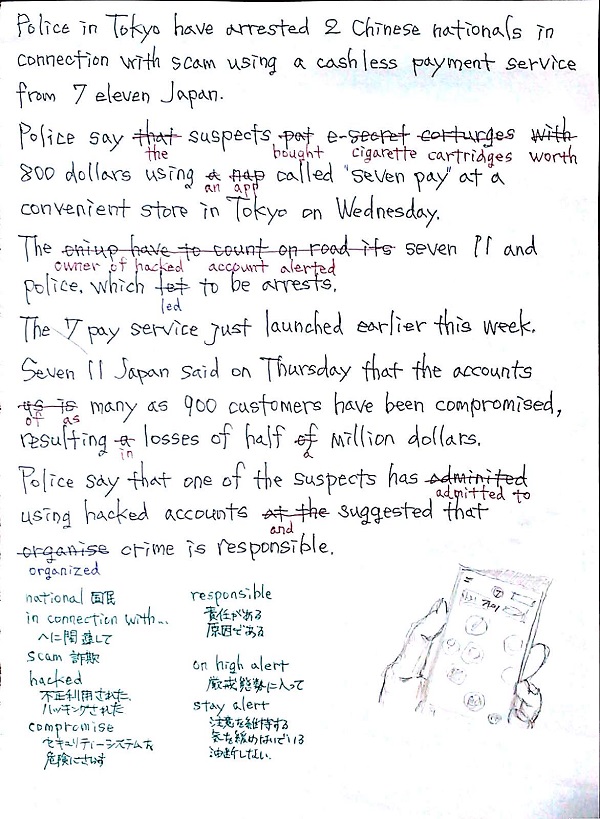 Police in Tokyo have arrested 2 Chinese nationals in
connection with scam using a cashless payment service
from 7 eleven Japan.
Police say that suspects pat e-secret corturges with
the bought cigarette cartridges worth
800 dollars using a nap called "seven pay" at a
an app
convenient store in Tokyo on Wednesday.
The oniup have to count on road its seven 11 and
owner of hacked account alerted
police, which let to be arrests.
led
The 7 pay service just launched earlier this week.
Seven 11 Japan said on Thursday that the accounts
us is many as 900 customers have been compromised,
of as
resulting a losses of half of million dollars.
in a
Police say that one of the suspects has adminited
admitted to
using hacked accounts at the suggested that
and
organise crime is responsible.
organized
national 国民
in connection with...
へに関連して
scam 詐欺
hacked
不正利用された
ハッキングされた
compromise
セキュリティーシステムを
危険にさらす
responsible
責任がある
原因である
on high alert
厳戒態勢に入って
stay alert
注意を維持する
気を緩めないでいる
油断しない